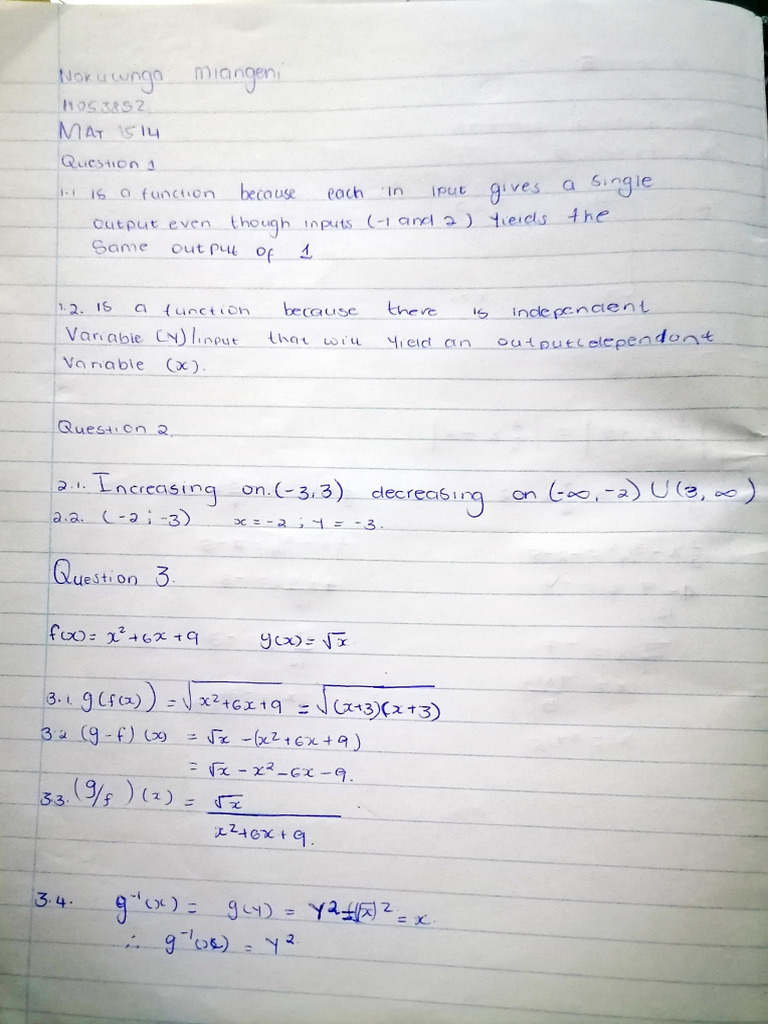 Nokuwnga Mlangeni
11053852
MAT 1514
Question 1
1.1 is a function because each in iput gives a single
output even though inputs (-1 and 2) yields the
same output of 1
1.2. is a function because there is independent
Variable (y)/input that will yield an output(dependant
Variable (x).
Question 2
2.1. Increasing on.(-3,3) decreasing on (-∞,-2) ∪ (3, ∞)
2.2. (-2 ; -3) x = -2 ; y = -3.
Question 3.
f(x) = x²+6x+9 y(x) = √x
3.1. g(f(x)) = √x²+6x+9 = √(x+3)(x+3)
3.2 (g-f)(x) = √x -(x²+6x+9)
= √x - x² - 6x - 9.
3.3. (g/f)(x) = √x
x²+6x+9.
3.4. g⁻¹(x) = g(y) = y² (√x)² = x
∴ g⁻¹(x) = y²